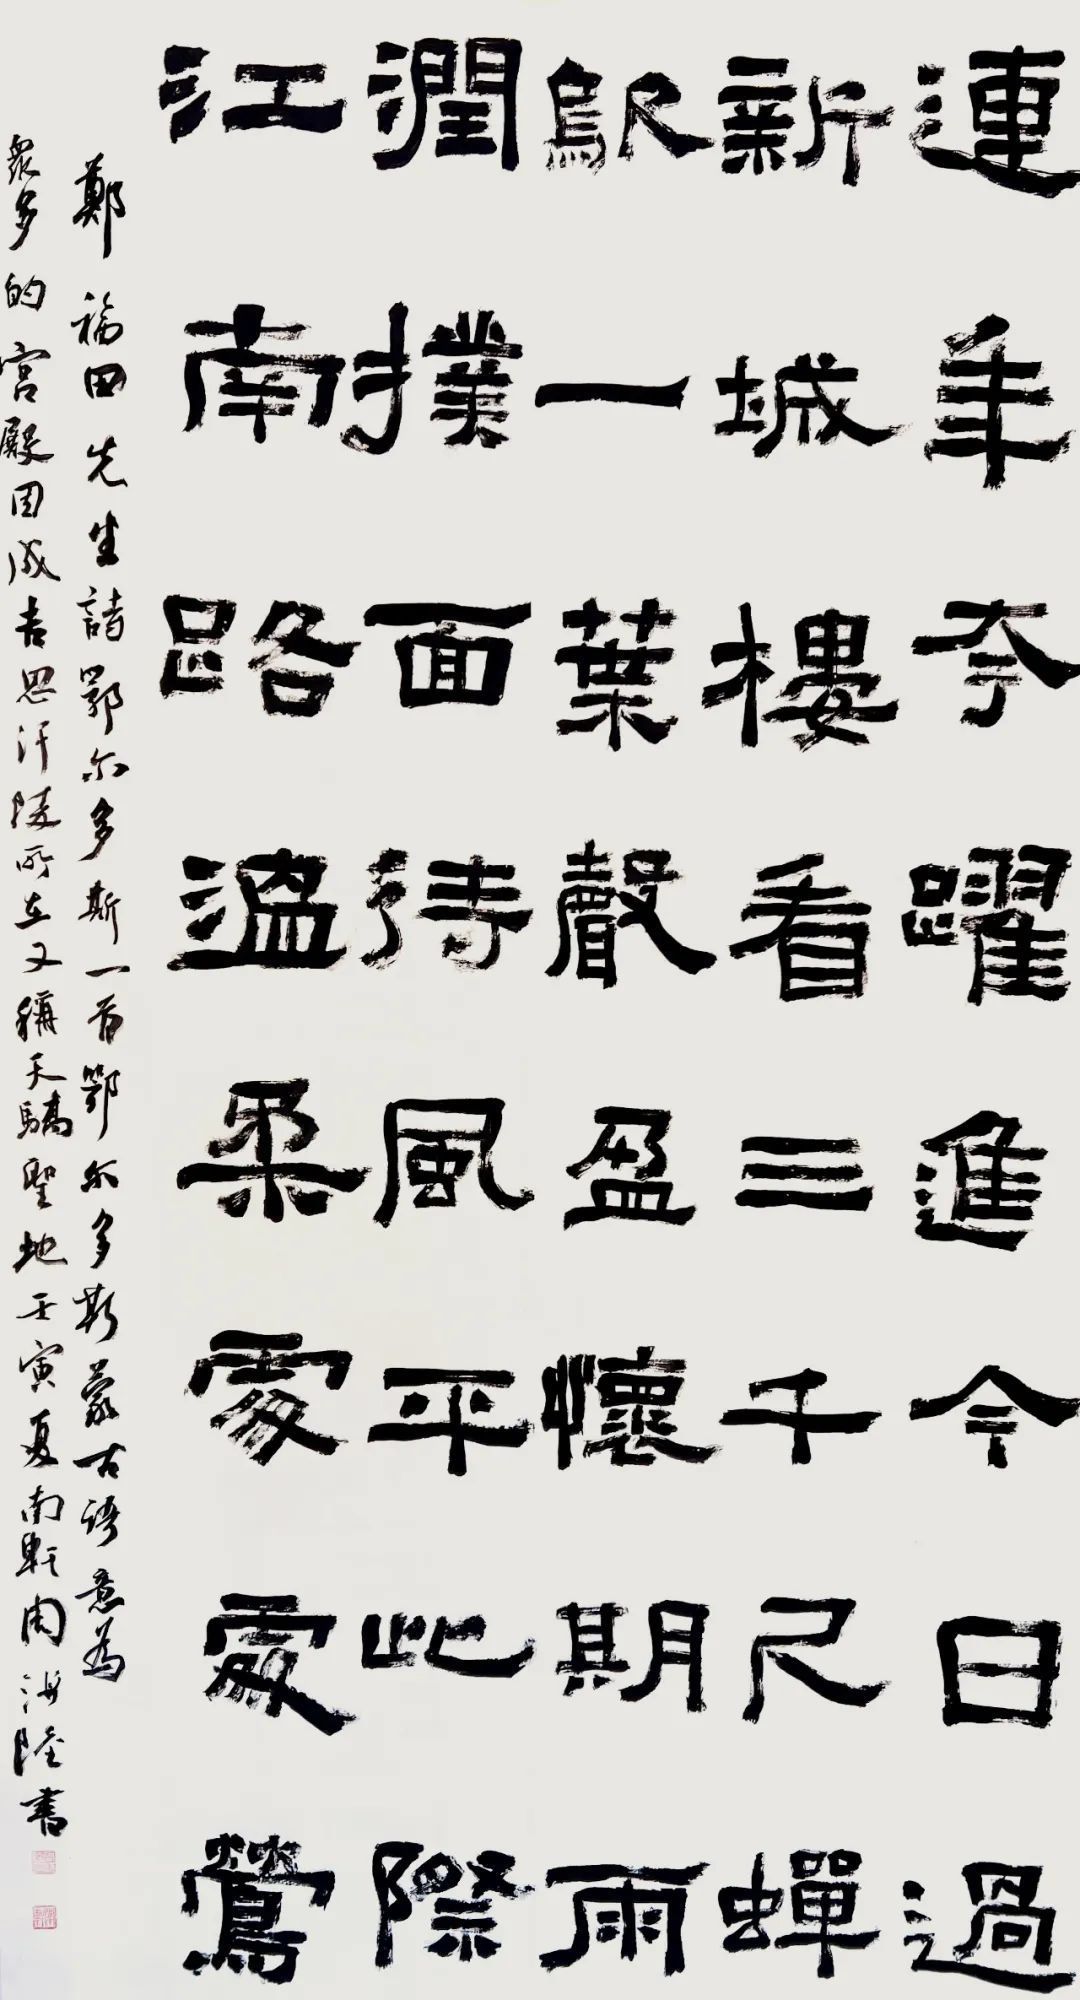 連年夸躍進今日過
新城樓看三千尺蟬
一葉聲盈懷期雨
潤撲面待風平此際
江南路溫柔處處鶯
鄭福田先生詩鄂尔多斯一首鄂尔多斯蒙古語意為
眾多的宮殿因成吉思汗陵所在又稱天驕聖地壬寅夏南軒周海陸書